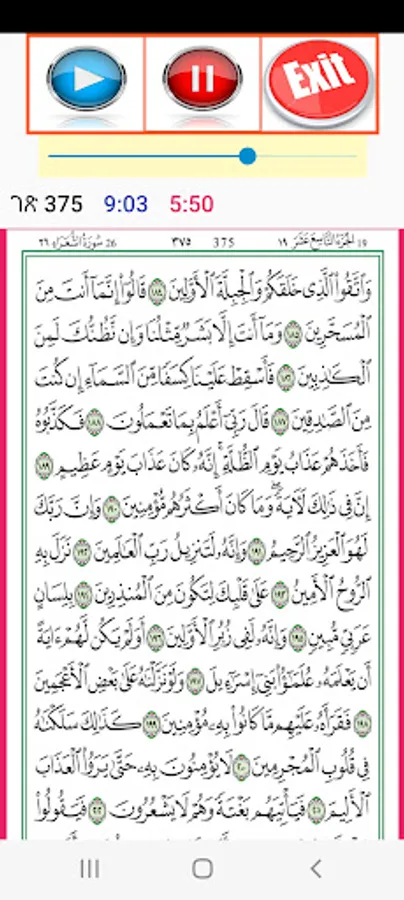 Exit
ገጽ 375 9:03 5:50
26 سُورَةُ الشُّعَرَاءِ ٢٦ ٣٧٥ 375 الجُزْءُ التَّاسِعَ عَشَرَ ١٩ 19
وَٱتَّقُوا۟ ٱلَّذِى خَلَقَكُمْ وَٱلْجِبِلَّةَ ٱلْأَوَّلِينَ ١٨٤ قَالُوٓا۟ إِنَّمَآ أَنتَ مِنَ
ٱلْمُسَحَّرِينَ ١٨٥ وَمَآ أَنتَ إِلَّا بَشَرٌ مِّثْلُنَا وَإِن نَّظُنُّكَ لَمِنَ
ٱلْكَـٰذِبِينَ ١٨٦ فَأَسْقِطْ عَلَيْنَا كِسَفًا مِّنَ ٱلسَّمَآءِ إِن كُنتَ
مِنَ ٱلصَّـٰدِقِينَ ١٨٧ قَالَ رَبِّىٓ أَعْلَمُ بِمَا تَعْمَلُونَ ١٨٨ فَكَذَّبُوهُ
فَأَخَذَهُمْ عَذَابُ يَوْمِ ٱلظُّلَّةِ ۚ إِنَّهُۥ كَانَ عَذَابَ يَوْمٍ عَظِيمٍ ١٨٩
إِنَّ فِى ذَٰلِكَ لَـَٔايَةً ۖ وَمَا كَانَ أَكْثَرُهُم مُّؤْمِنِينَ ١٩٠ وَإِنَّ رَبَّكَ
لَهُوَ ٱلْعَزِيزُ ٱلرَّحِيمُ ١٩١ وَإِنَّهُۥ لَتَنزِيلُ رَبِّ ٱلْعَـٰلَمِينَ ١٩٢ نَزَلَ بِهِ
ٱلرُّوحُ ٱلْأَمِينُ ١٩٣ عَلَىٰ قَلْبِكَ لِتَكُونَ مِنَ ٱلْمُنذِرِينَ ١٩٤ بِلِسَانٍ
عَرَبِىٍّ مُّبِينٍ ١٩٥ وَإِنَّهُۥ لَفِى زُبُرِ ٱلْأَوَّلِينَ ١٩٦ أَوَلَمْ يَكُن لَّهُمْ ءَايَةً
أَن يَعْلَمَهُۥ عُلَمَـٰٓؤُا۟ بَنِىٓ إِسْرَٰٓءِيلَ ١٩٧ وَلَوْ نَزَّلْنَـٰهُ عَلَىٰ بَعْضِ ٱلْأَعْجَمِينَ
١٩٨ فَقَرَأَهُۥ عَلَيْهِم مَّا كَانُوا۟ بِهِۦ مُؤْمِنِينَ ١٩٩ كَذَٰلِكَ سَلَكْنَـٰهُ
فِى قُلُوبِ ٱلْمُجْرِمِينَ ٢٠٠ لَا يُؤْمِنُونَ بِهِۦ حَتَّىٰ يَرَوُا۟ ٱلْعَذَابَ
ٱلْأَلِيمَ ٢٠١ فَيَأْتِيَهُم بَغْتَةً وَهُمْ لَا يَشْعُرُونَ ٢٠٢ فَيَقُولُوا۟